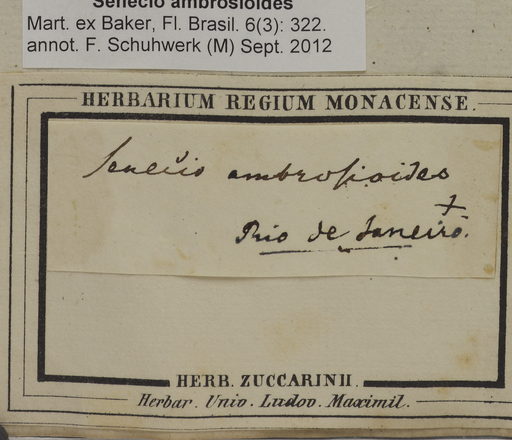 Senecio ambrosioides
Mart. ex Baker, Fl. Brasil. 6(3): 322.
annot. F. Schuhwerk (M) Sept. 2012
HERBARIUM REGIUM MONACENSE.
Senecio ambrosioides
+
Rio de Janeiro.
HERB. ZUCCARINII.
Herbar. Univ. Ludov. Maximil.